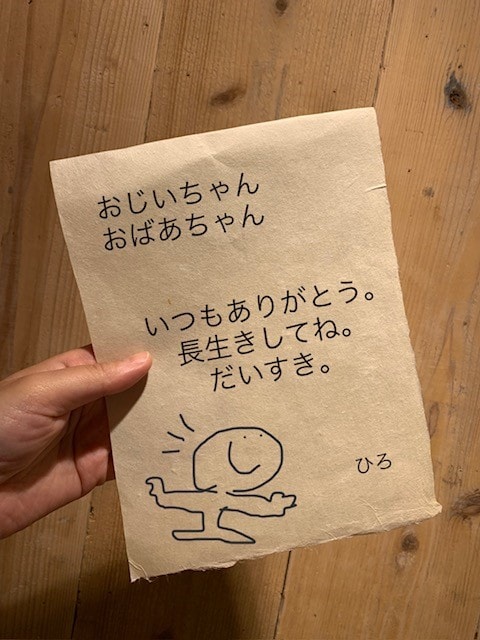 おじいちゃん
おばあちゃん
いつもありがとう。
長生きしてね。
だいすき。
ひろ